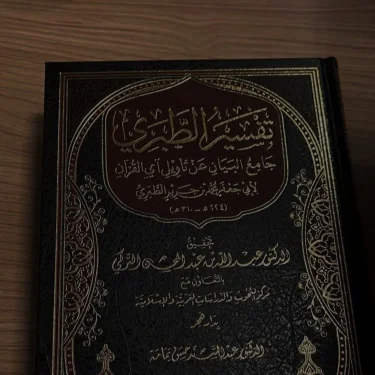 تفسير الطبري
جامع البيان عن تأويل آي القرآن
لأبي جعفر محمد بن جرير الطبري
(٢٢٤هـ - ٣١٠هـ)
تحقيق
الدكتور عبد الله بن عبد المحسن التركي
بالتعاون مع
مركز البحوث والدراسات العربية والإسلامية
بدار هجر
الدكتور عبد السند حسن يمامة